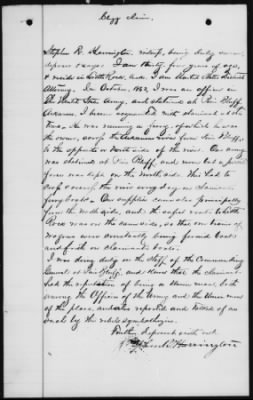 Clegg Claim.
Stephen R. Harrington, witness, being duly sworn
deposes & says: I am thirty five years of age,
& reside in Little Rock, Arks. I am United States District
Attorney. In October, 1863, I was an officer in
the United States Army, and stationed at Pine Bluff
Arkansas. I became acquainted with claimant at that
time. He was running a ferry, of which he was
the owner, across the Arkansas river from Pine Bluff
to the opposite or north side of the river. Our army
was stationed at Pine Bluff, and more but a picket
force was kept on the north side. This had to
cross & recross the river every day on claimant's
ferry boats. Our supplies came also principally
from the north side, and the safest route to Little
Rock was on the same side, so that our trains of
wagons were constantly being ferried back
and forth on claimant's boats.
I was doing duty on the Staff of the Commanding
General at Pine Bluff, and know that the claimant
had the reputation of being a Union man, both
among the Officers of the Army and the Union men
of the place, and was reported and treated as
such by the rebels sympathizers.
Further deponent saith not.
Stephen R. Harrington